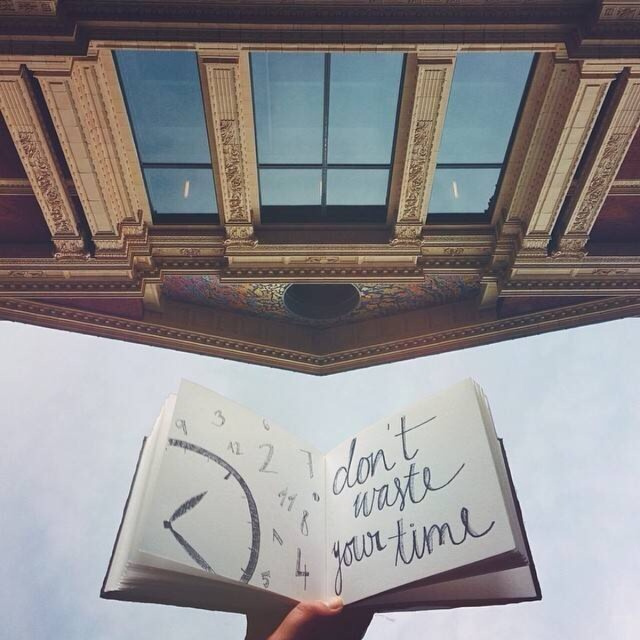 9
3
6
12
2
7
8
4
5
don't
waste
your time